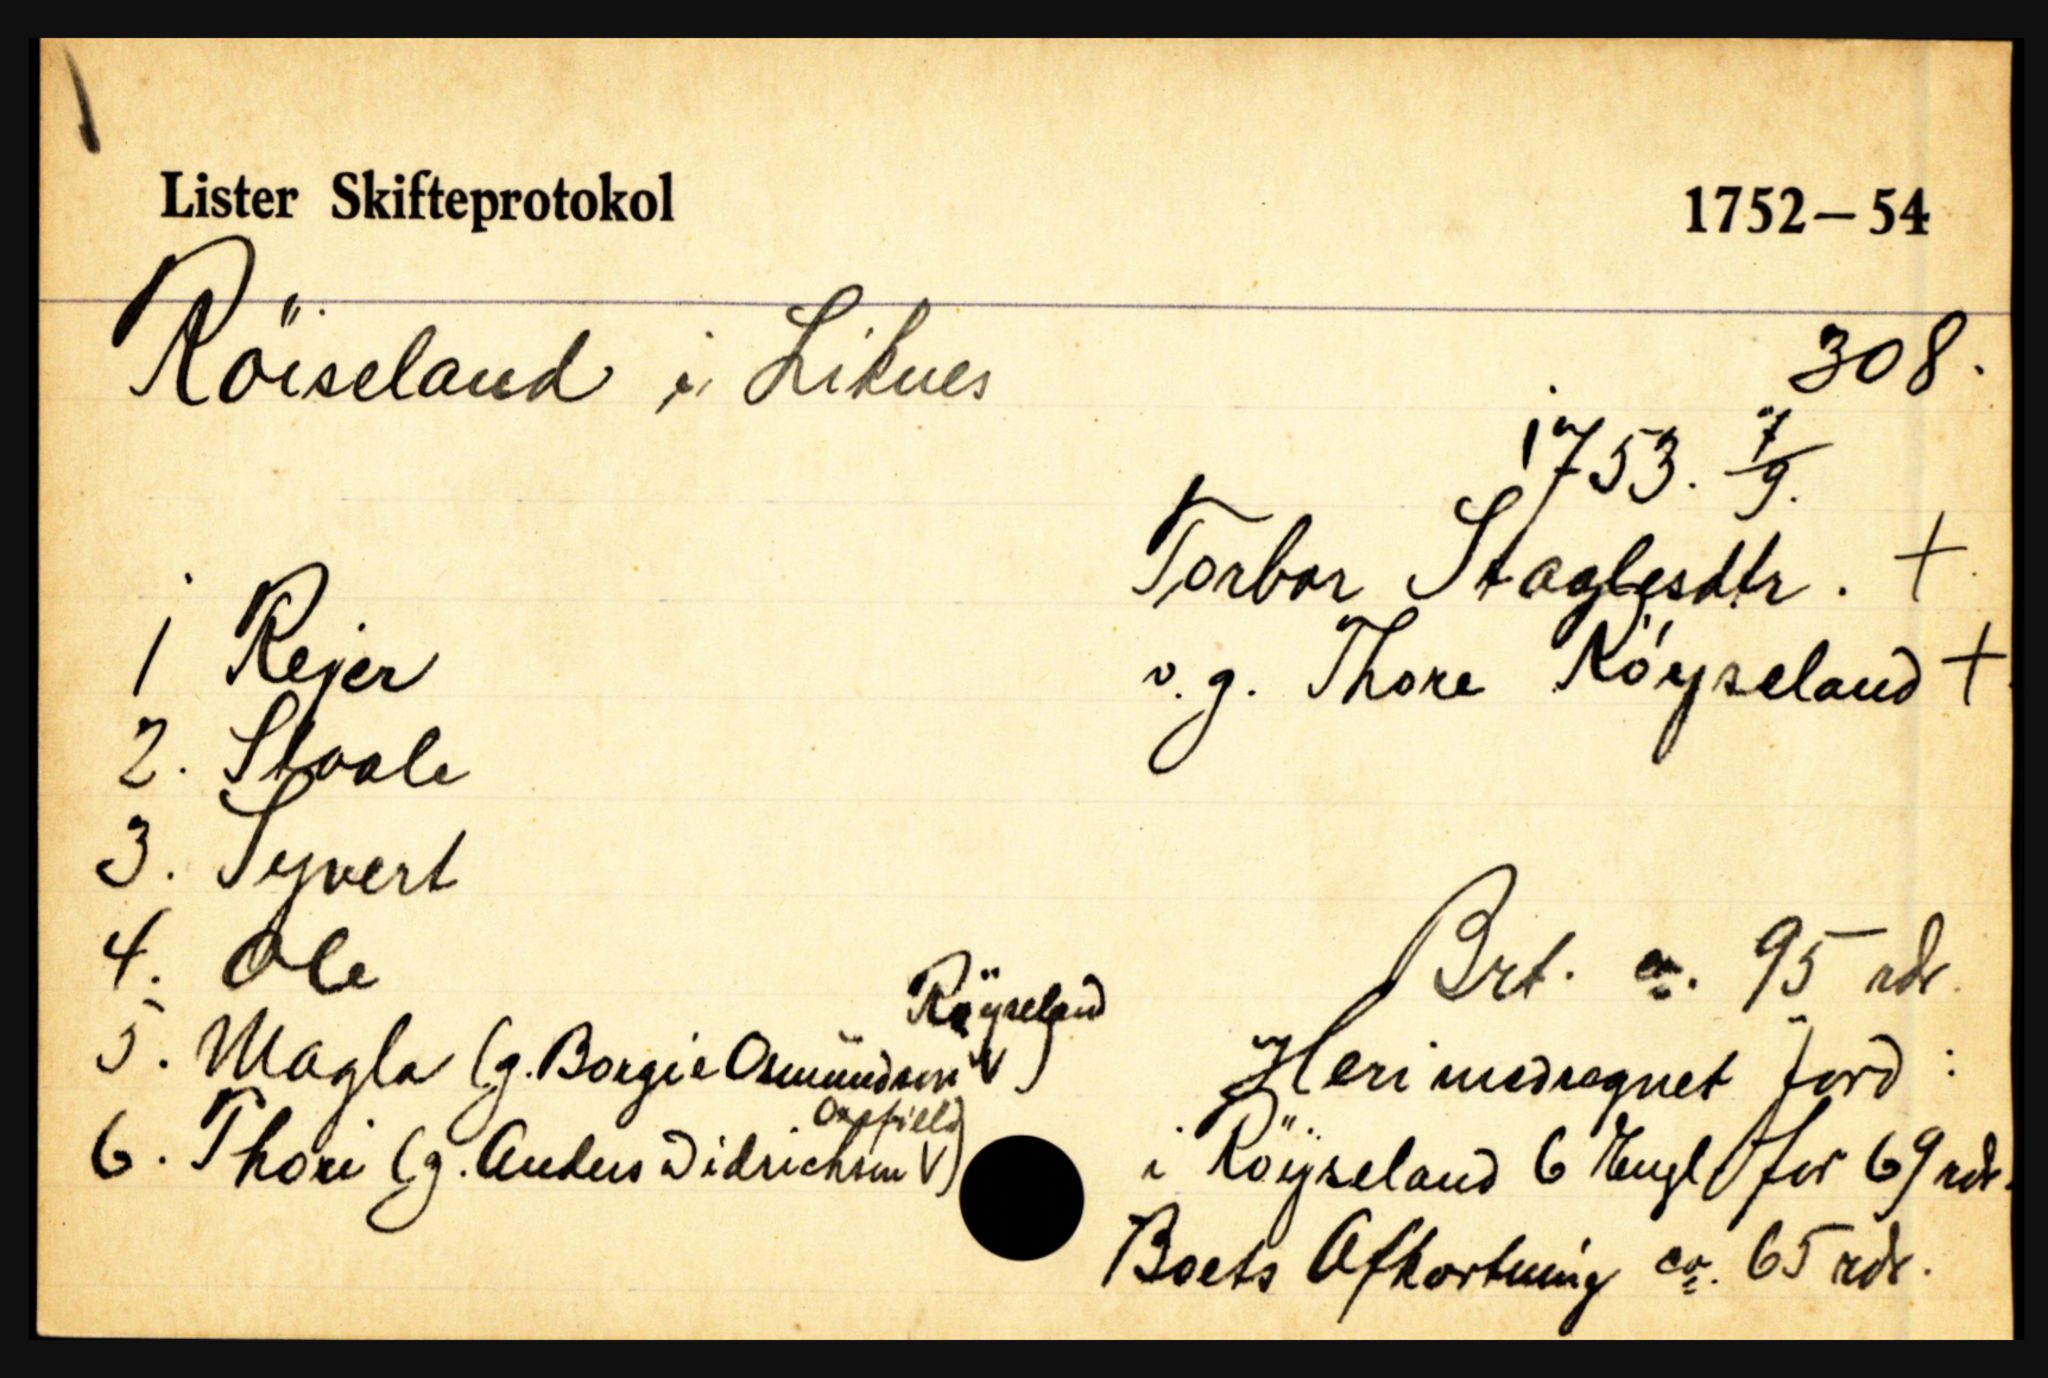 Lister Skifteprotokol 1752—54
Röiseland i Liknes
308.
1753. 7/9.
Torbor Staglesdtr. +
v. g. Thore Röyseland +
1 Rejer
2. Staale
3. Syvert
4. Ole
5. Magla (g. Borgie Osmundsen Röyseland V)
6. Thori (g. Anders Didrichsen V)
Brt. ca. 95 rdr.
Heri medregnet Jord:
i Röyseland 6 Engl for 69 rdr.
Boets Afkortning ca. 65 rdr.